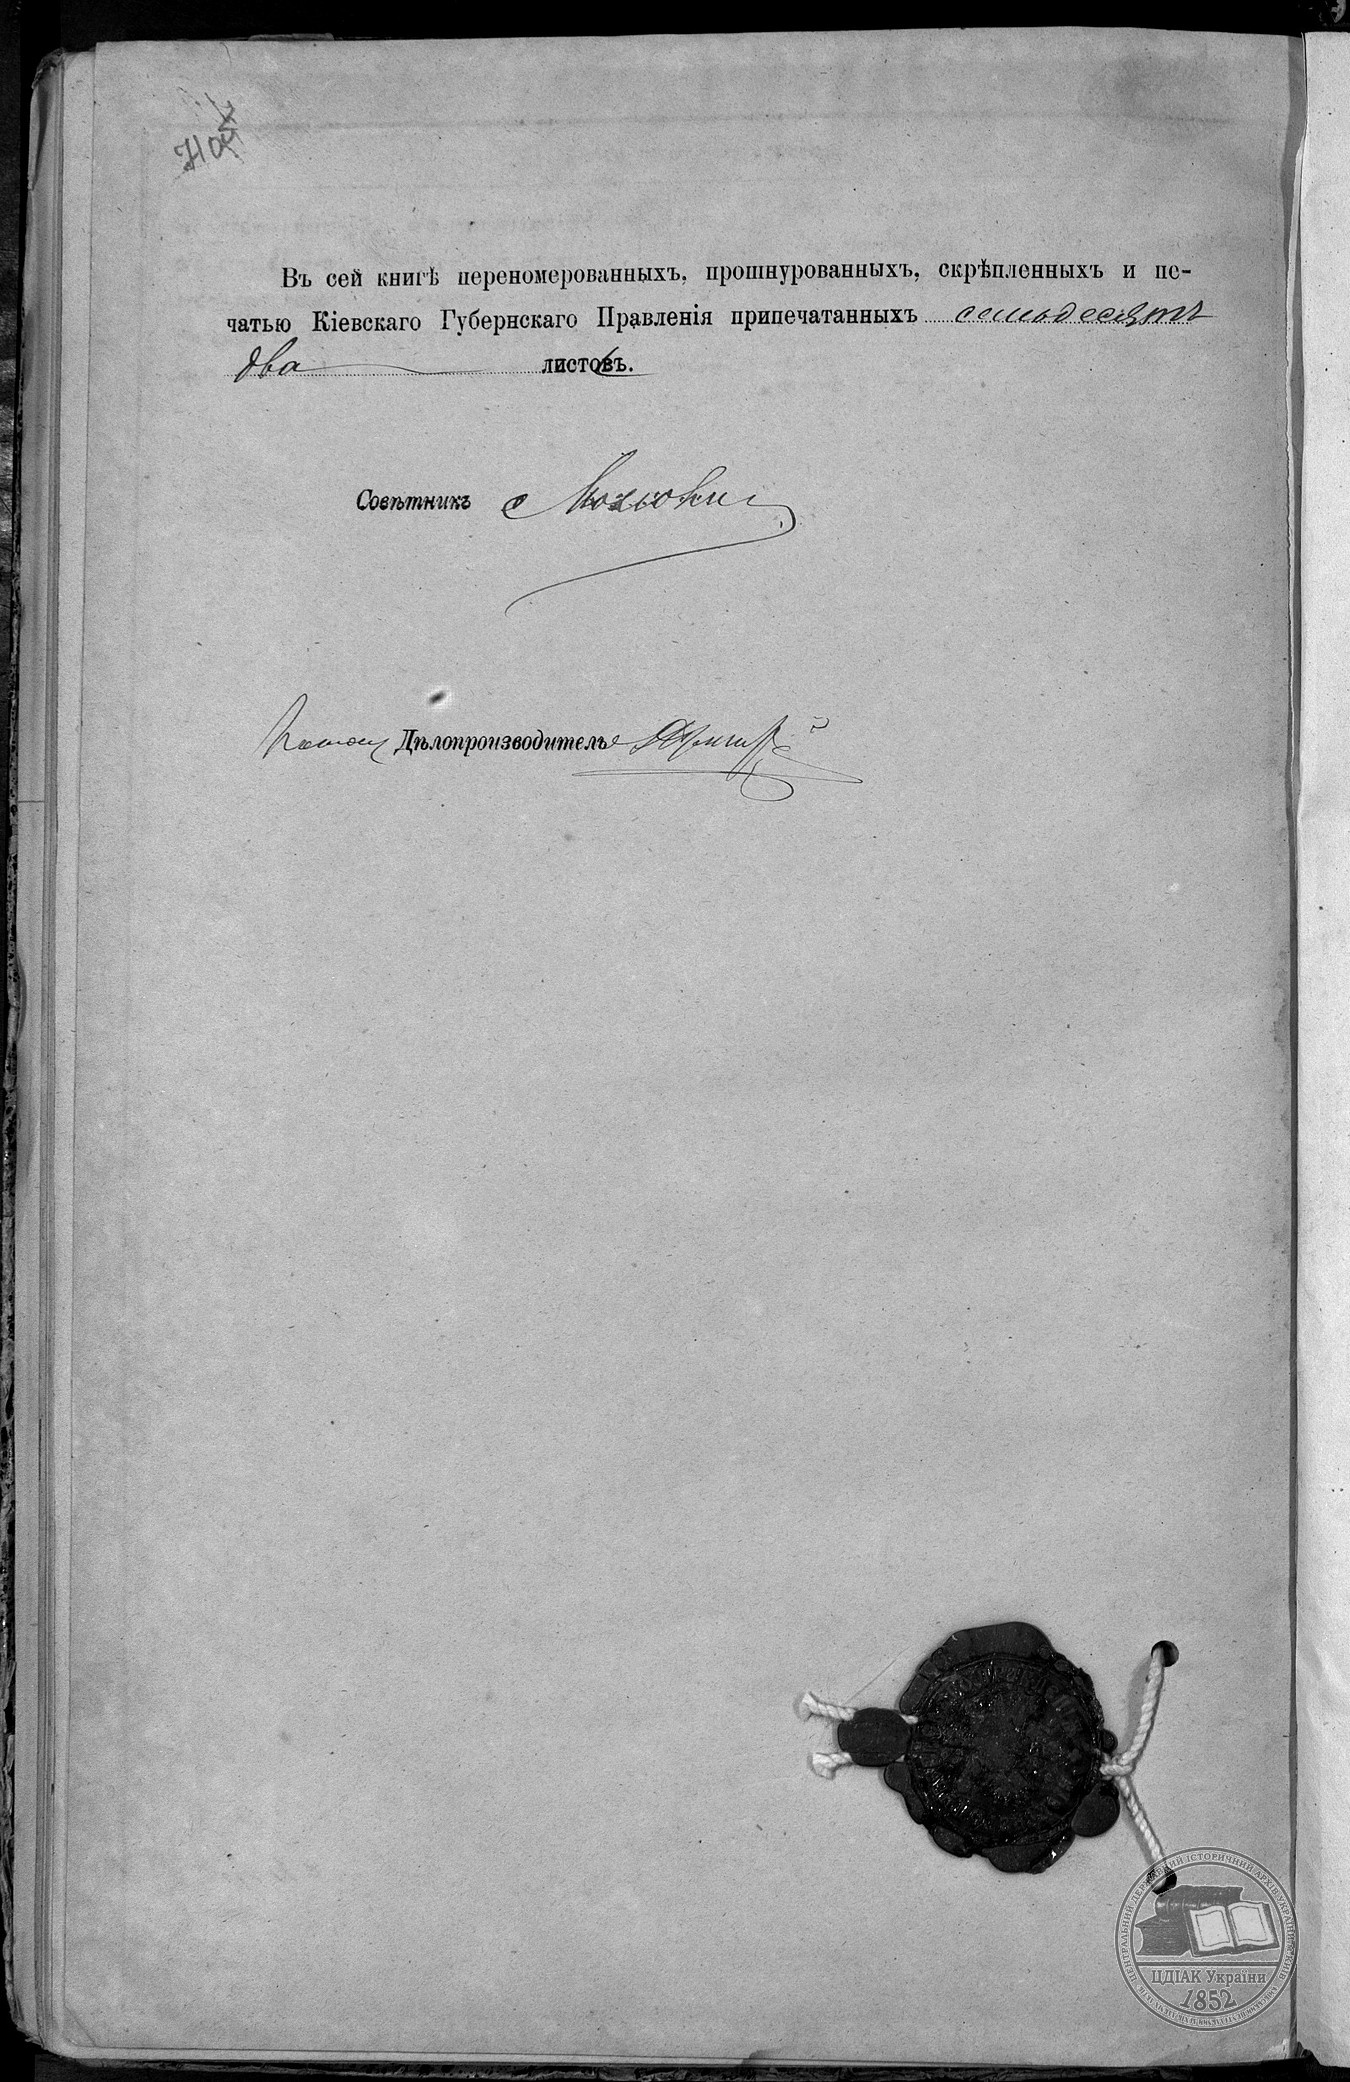 Въ сей книгѣ переномерованныхъ, прошнурованныхъ, скрѣпленныхъ и пе-
чатью Кіевскаго Губернскаго Правленія припечатанныхъ семьдесятъ
два листовъ.
Совѣтникъ
Дѣлопроизводитель
ЦЕНТРАЛЬНИЙ ДЕРЖАВНИЙ ІСТОРИЧНИЙ АРХІВ УКРАЇНИ, М. КИЇВ
ЦДІАК України
1852